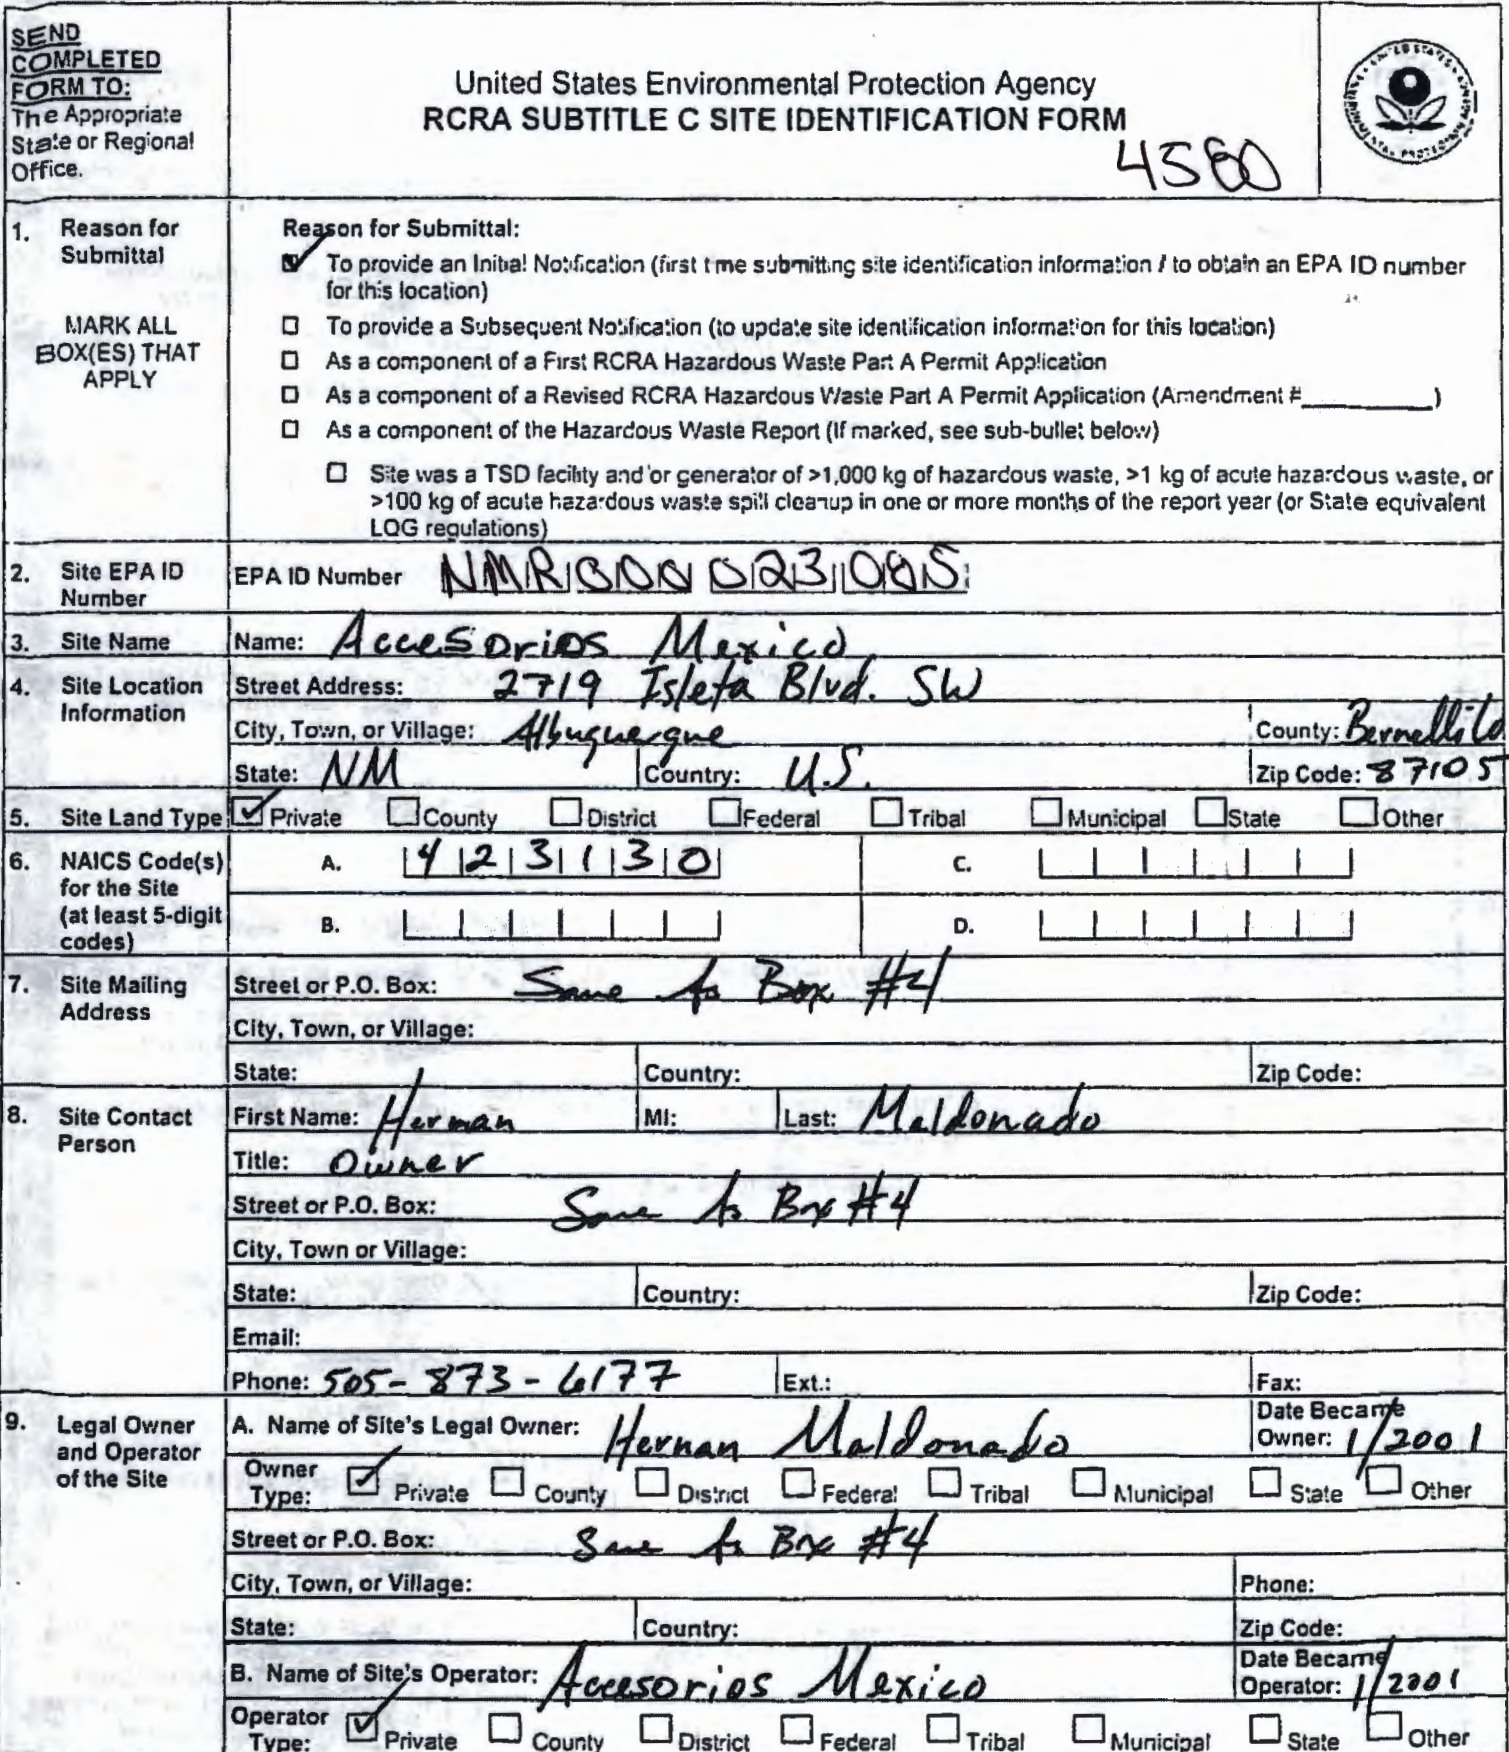 SEND
COMPLETED
FORM TO:
The Appropriate
State or Regional
Office.
United States Environmental Protection Agency
RCRA SUBTITLE C SITE IDENTIFICATION FORM
4580
1. Reason for
Submittal
MARK ALL
BOX(ES) THAT
APPLY
Reason for Submittal:
To provide an Initial Notification (first time submitting site identification information / to obtain an EPA ID number
for this location)
To provide a Subsequent Notification (to update site identification information for this location)
As a component of a First RCRA Hazardous Waste Part A Permit Application
As a component of a Revised RCRA Hazardous Waste Part A Permit Application (Amendment #__________)
As a component of the Hazardous Waste Report (If marked, see sub-bullet below)
Site was a TSD facility and/or generator of >1,000 kg of hazardous waste, >1 kg of acute hazardous waste, or
>100 kg of acute hazardous waste spill cleanup in one or more months of the report year (or State equivalent
LQG regulations)
2. Site EPA ID
Number
EPA ID Number
3. Site Name
Name: Accesorios Mexico
4. Site Location
Information
Street Address: 2719 Isleta Blvd. SW
City, Town, or Village: Albuquerque County: Bernallilo
State: NM Country: U.S. Zip Code: 87105
5. Site Land Type Private County District Federal Tribal Municipal State Other
6. NAICS Code(s)
for the Site
(at least 5-digit
codes)
A. 423130 C.
B. D.
7. Site Mailing
Address
Street or P.O. Box: Same As Box #4
City, Town, or Village:
State: Country: Zip Code:
8. Site Contact
Person
First Name: Herman MI: Last: Maldonado
Title: Owner
Street or P.O. Box: Same As Box #4
City, Town or Village:
State: Country: Zip Code:
Email:
Phone: 505-873-6177 Ext.: Fax:
9. Legal Owner
and Operator
of the Site
A. Name of Site's Legal Owner: Hernan Maldonado Date Became
Owner: 1/2001
Owner
Type: Private County District Federal Tribal Municipal State Other
Street or P.O. Box: Same As Box #4
City, Town, or Village: Phone:
State: Country: Zip Code:
B. Name of Site's Operator: Accesorios Mexico Date Became
Operator: 1/2001
Operator
Type: Private County District Federal Tribal Municipal State Other